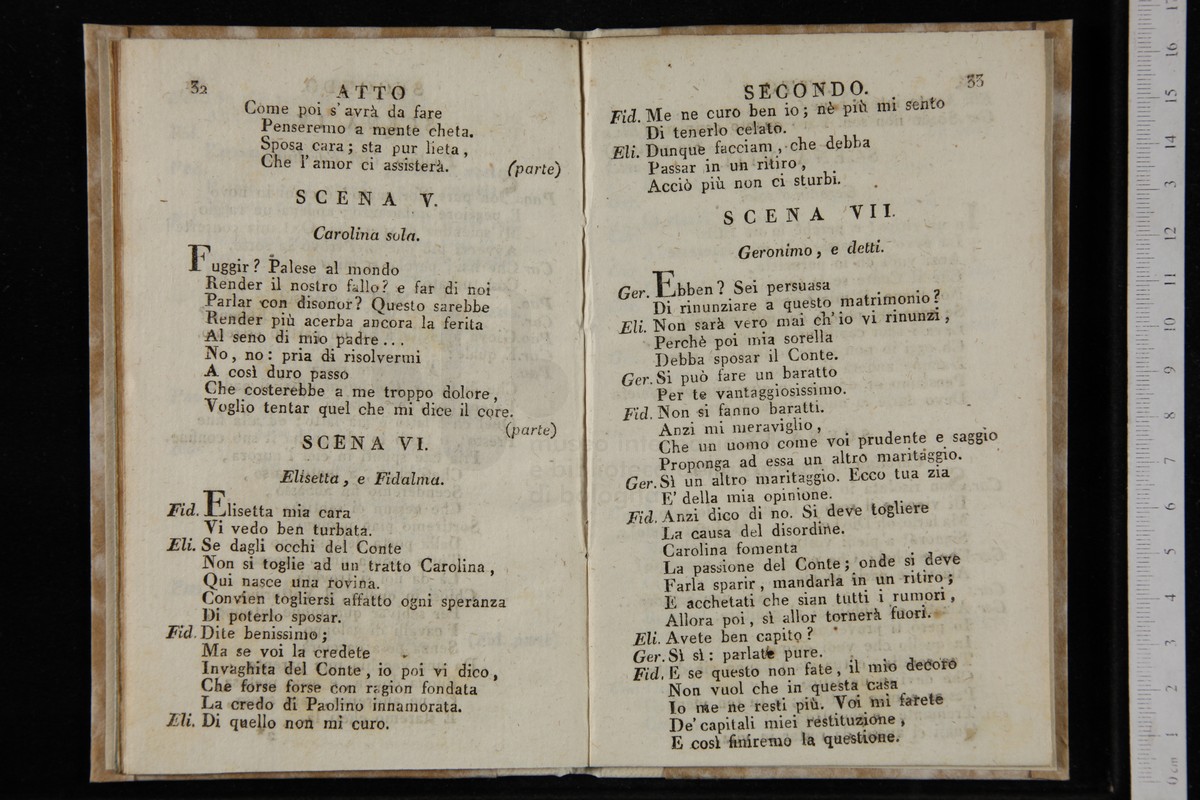 32
ATTO
Come poi s'avrà da fare
Penseremo a mente cheta.
Sposa cara; sta pur lieta,
Che l'amor ci assisterà. (parte)
SCENA V.
Carolina sola.
Fuggir? Palese al mondo
Render il nostro fallo? e far di noi
Parlar con disonor? Questo sarebbe
Render più acerba ancora la ferita
Al seno di mio padre...
No, no: pria di risolvermi
A così duro passo
Che costerebbe a me troppo dolore,
Voglio tentar quel che mi dice il core.
(parte)
SCENA VI.
Elisetta, e Fidalma.
Fid. Elisetta mia cara
Vi vedo ben turbata.
Eli. Se dagli occhi del Conte
Non si toglie ad un tratto Carolina,
Qui nasce una rovina.
Convien togliersi affatto ogni speranza
Di poterlo sposar.
Fid. Dite benissimo;
Ma se voi la credete
Invaghita del Conte, io poi vi dico,
Che forse forse con ragion fondata
La credo di Paolino innamorata.
Eli. Di quello non mi curo.
SECONDO.
33
Fid. Me ne curo ben io; nè più mi sento
Di tenerlo celato.
Eli. Dunque facciam, che debba
Passar in un ritiro,
Acciò più non ci sturbi.
SCENA VII.
Geronimo, e detti.
Ger. Ebben? Sei persuasa
Di rinunziare a questo matrimonio?
Eli. Non sarà vero mai ch'io vi rinunzi,
Perchè poi mia sorella
Debba sposar il Conte.
Ger. Si può fare un baratto
Per te vantaggiosissimo.
Fid. Non si fanno baratti.
Anzi mi meraviglio,
Che un uomo come voi prudente e saggio
Proponga ad essa un altro maritaggio.
Ger. Sì un altro maritaggio. Ecco tua zia
E' della mia opinione.
Fid. Anzi dico di no. Si deve togliere
La causa del disordine.
Carolina fomenta
La passione del Conte; onde si deve
Farla sparir, mandarla in un ritiro;
E acchetati che sian tutti i rumori,
Allora poi, sì allor tornerà fuori.
Eli. Avete ben capito?
Ger. Sì sì: parlate pure.
Fid. E se questo non fate, il mio decoro
Non vuol che in questa casa
Io me ne resti più. Voi mi farete
De' capitali miei restituzione,
E così finiremo la questione.
0 cm 1 2 3 4 5 6 7 8 9 10 11 12 13 14 15 16 17